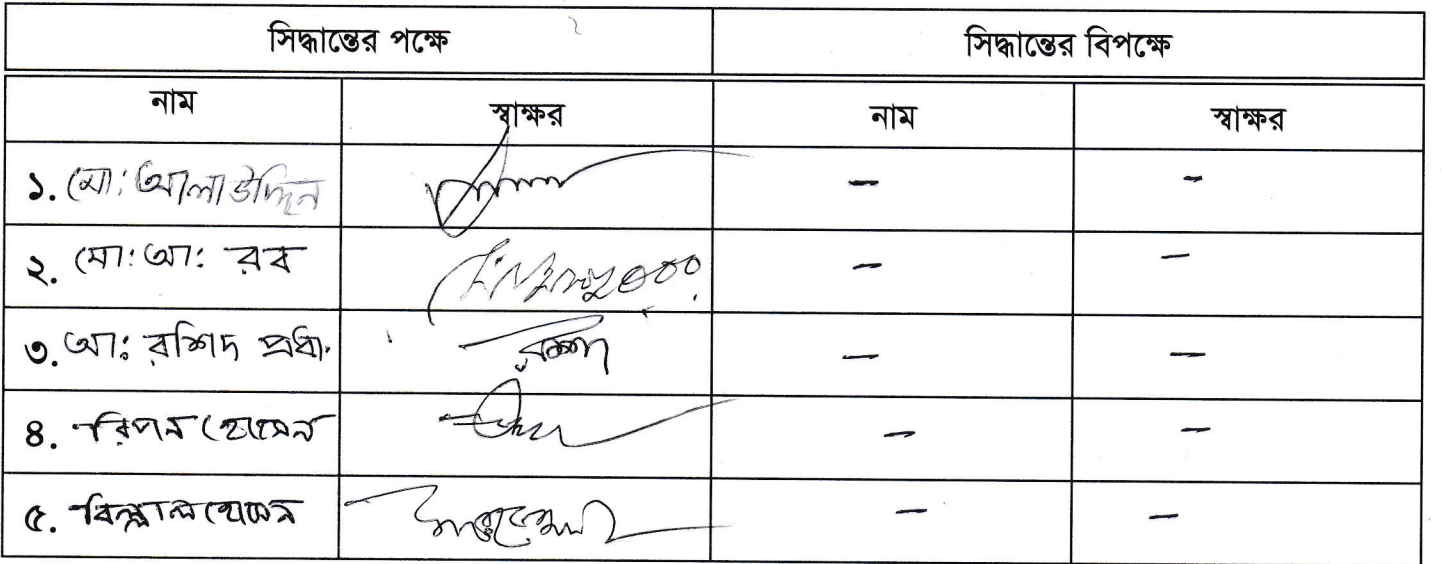 সিদ্ধান্তের পক্ষে সিদ্ধান্তের বিপক্ষে
নাম স্বাক্ষর নাম স্বাক্ষর
১. মো: আলাউদ্দিন - -
২. মো: আ: রব - -
৩. আ: রশিদ প্রধা. - -
৪. রিপন হোসেন - -
৫. বিল্লাল হোসেন - -